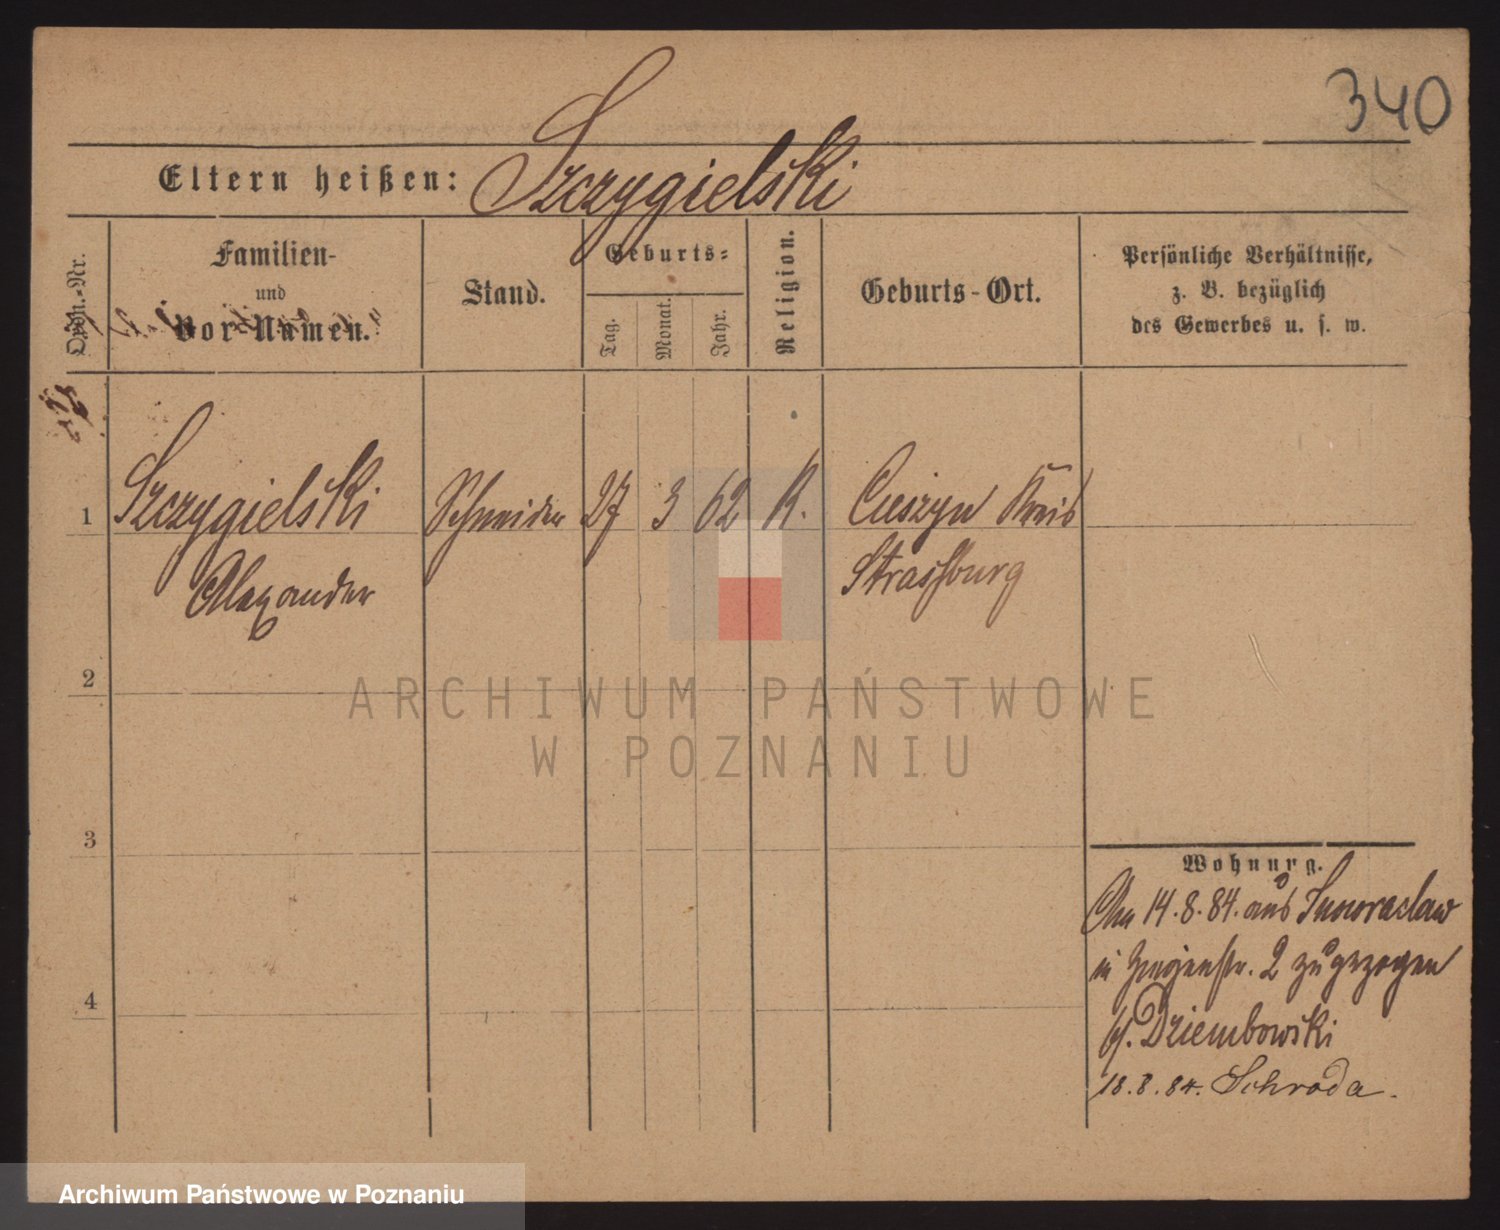 340
Eltern heißen: Szczygielski
Ordn.-Nr.
Familien-
und
Vor-Namen.
Stand.
Geburts-
Tag.
Monat.
Jahr.
Religion.
Geburts-Ort.
Persönliche Verhältnisse,
z. B. bezüglich
des Gewerbes u. s. w.
1 Szczygielski Schneider 27 3 62 K. Cieszyn Kreis
Alexander Strassburg
2
ARCHIWUM PAŃSTWOWE
W POZNANIU
3
Wohnung.
14.8.84. aus Inowraclaw
in 2 zugezogen
b/. Dziembowski
4
18.8.84. Schroda.
Archiwum Państwowe w Poznaniu